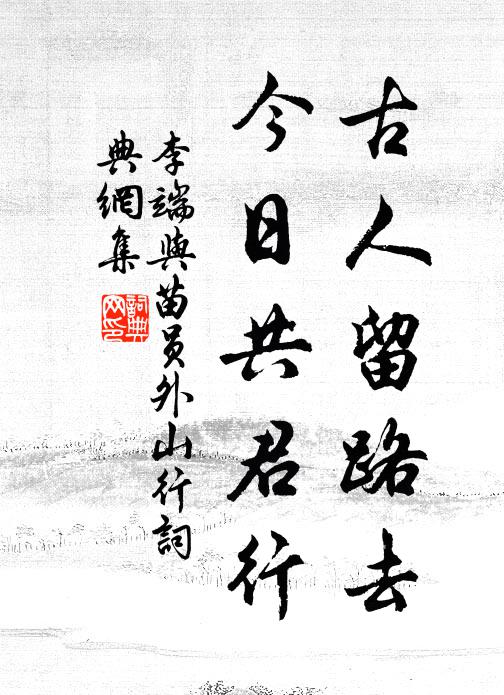 古人留路去
今日共君行
李端與苗員外山行詞
典網集
詞典
网印